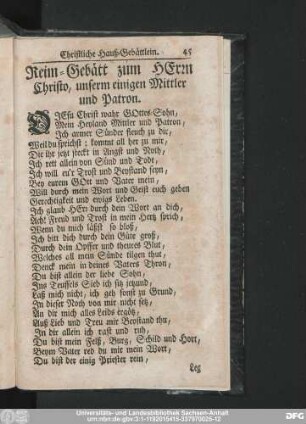 Christliche Hauß-Gebättlein. 45
Reim-Gebätt zum HErrn
Christo, unserm einigen Mittler
und Patron.
O JEsu Christ wahr GOttes-Sohn,
Mein Heyland Mittler und Patron,
Ich armer Sünder fleuch zu dir,
Weil du sprichst: kommt all her zu mir,
Die ihr jetzt steckt in Angst und Noth,
Ich rett allein von Sünd und Todt,
Ich will eu'r Trost und Beystand seyn,
Bey eurem GOtt und Vater mein,
Will durch mein Wort und Geist euch geben
Gerechtigkeit und ewigs Leben.
Ich glaub HErr durch dein Wort an dich,
Ach! Freud und Trost in mein Hertz sprich,
Wenn du mich läßst so bloß,
Ich bitt dich durch dein Güte groß,
Durch dein Opffer und theures Blut,
Welches all mein Sünde tilgen thut,
Denck mein in deines Vaters Thron,
Du bist allein der liebe Sohn,
Ins Teuffels Sieb ich sitz jetzund,
Laß mich nicht, ich geh sonst zu Grund,
In dieser Noth von mir nicht setz,
An dir mich alles Leids ergötz,
Auß Lieb und Treu mir Beystand thu,
In dir allein ich rast und ruh,
Du bist mein Felß, Burg, Schild und Hort,
Beym Vater red du mir mein Wort,
Du bist der einig Priester rein,
Leg
Universitäts- und Landesbibliothek Sachsen-Anhalt
urn:nbn:de:gbv:3:1-1192015415-337970025-12
DFG